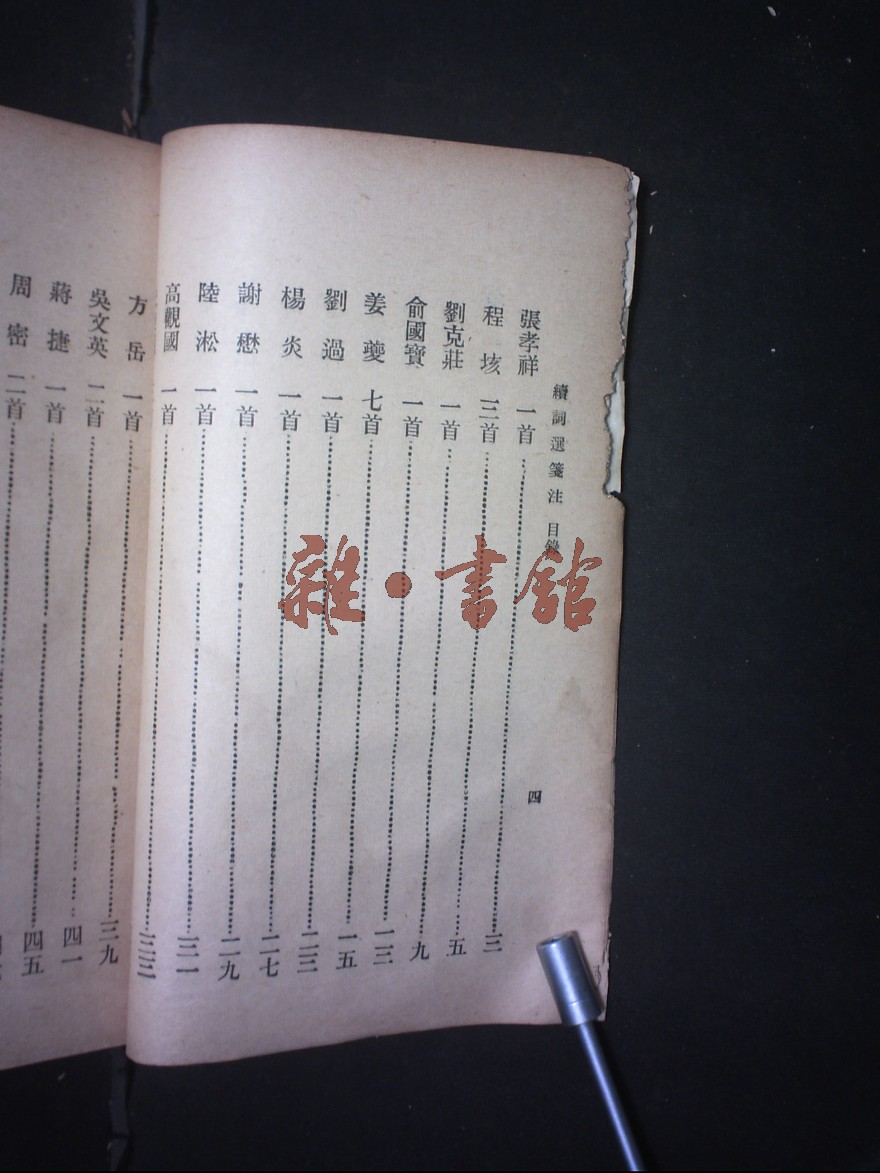 續詞選箋注 目錄 四
張孝祥 一首 三
程垓 三首 五
劉克莊 一首 九
俞國寶 一首 一三
姜夔 七首 一五
劉過 一首 二三
楊炎 一首 二七
謝懋 一首 二九
陸淞 一首 三一
高觀國 一首 三三
方岳 一首 三九
吳文英 二首 四一
蔣捷 一首 四五
周密 二首
雜·書館